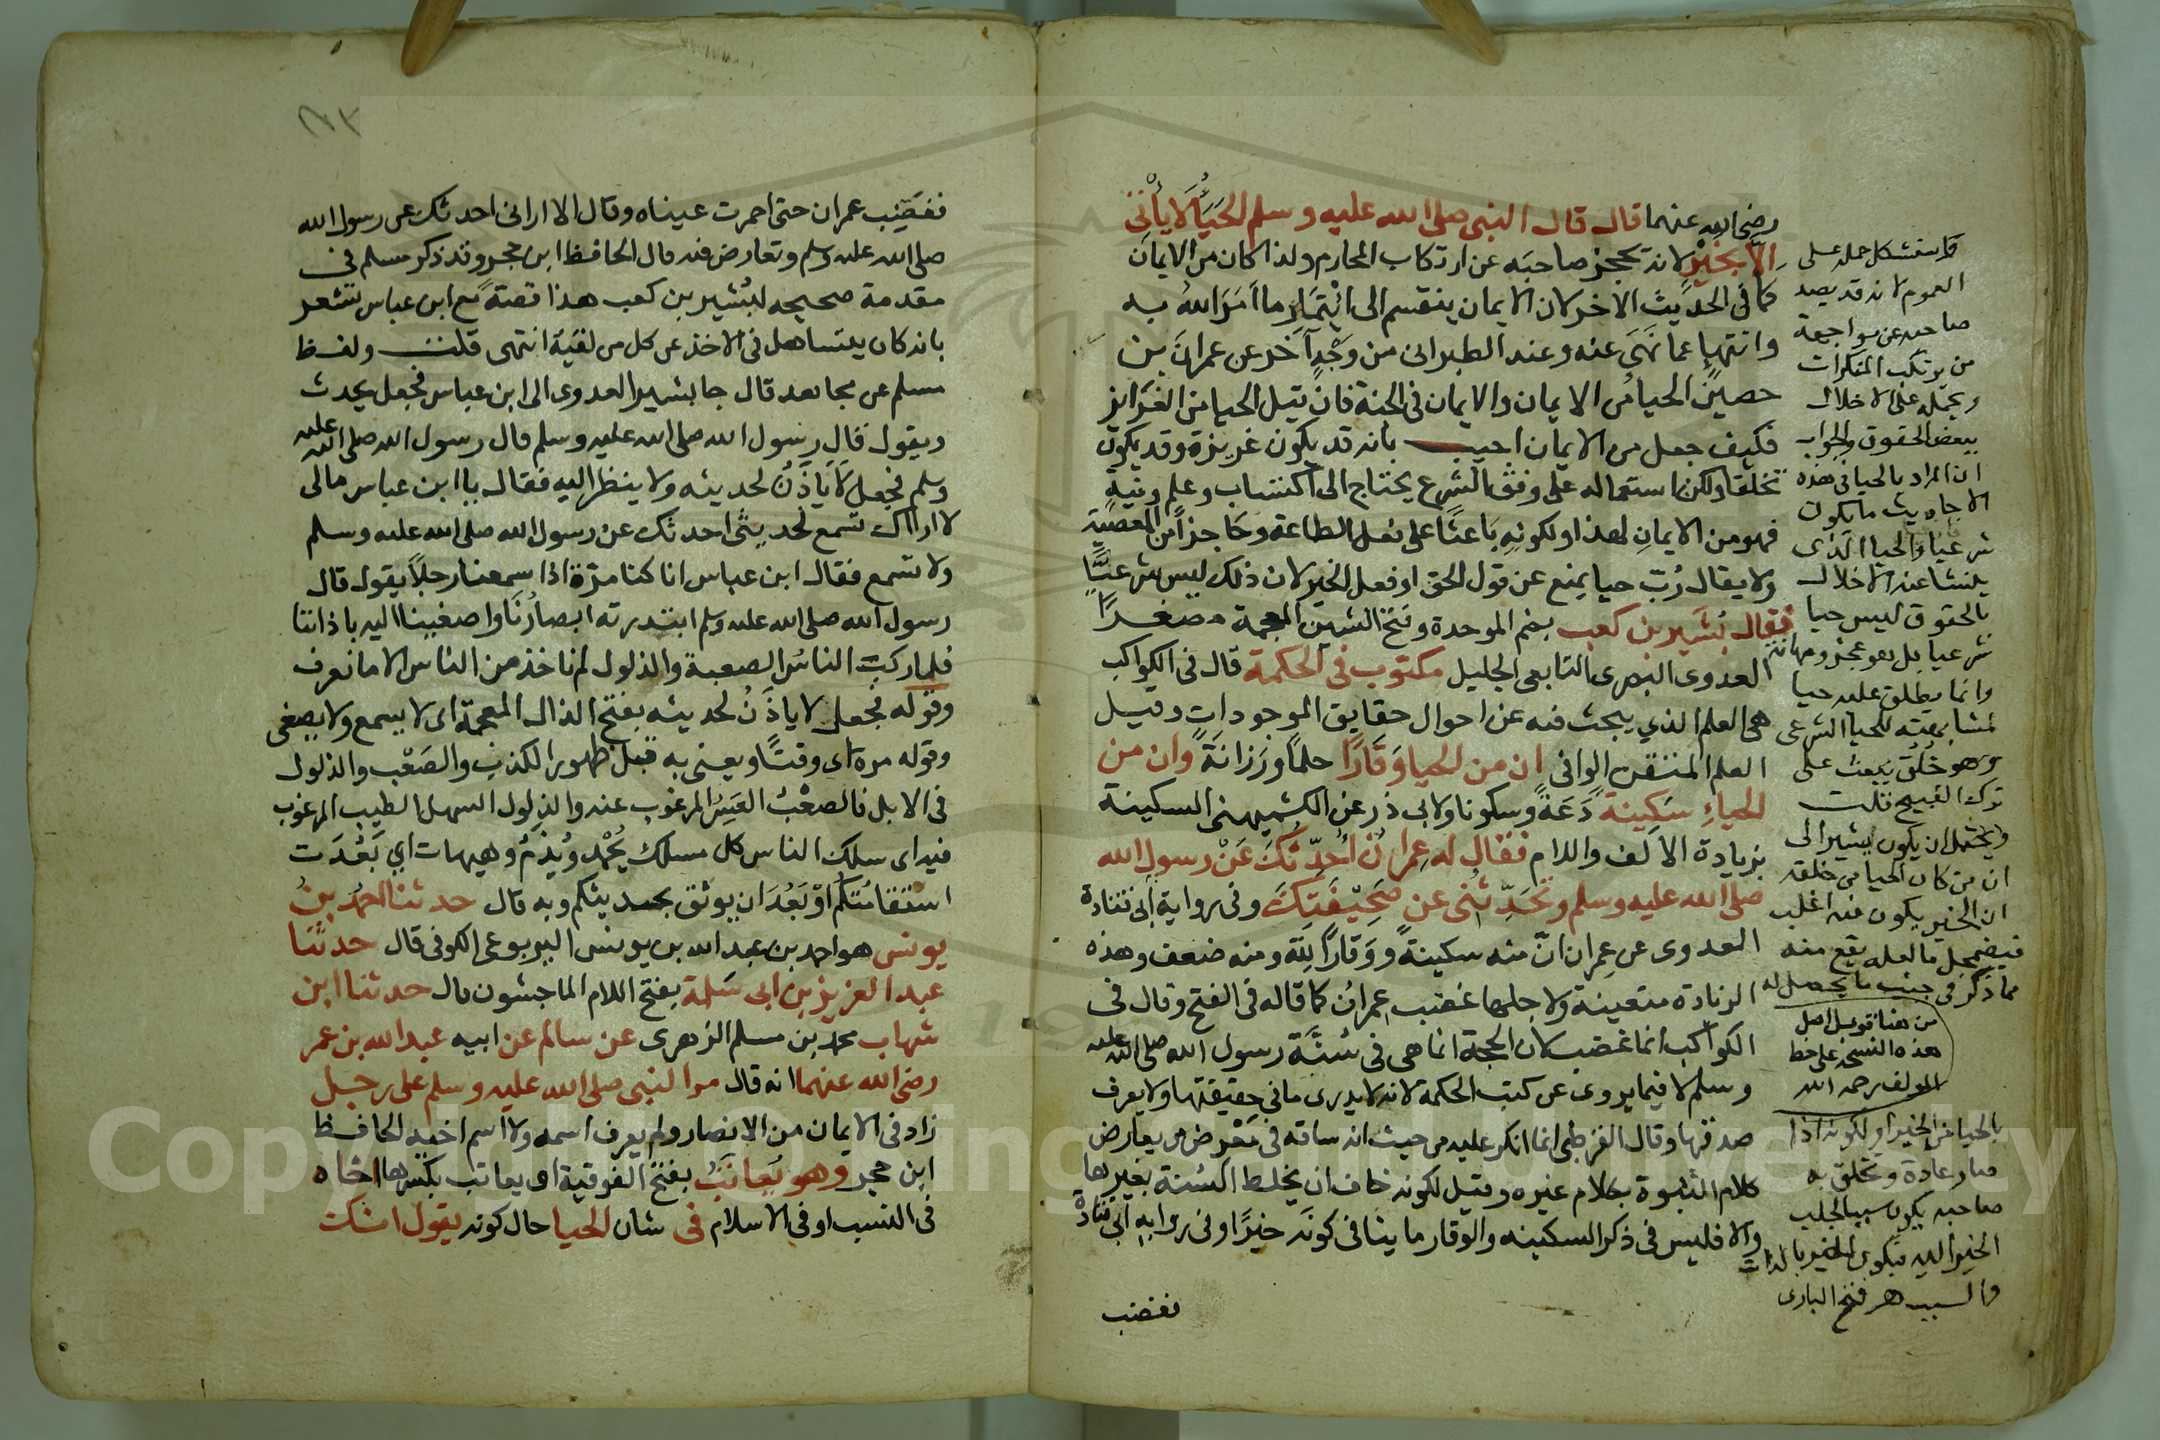 رضي الله عنهما قال قال النبي صلى الله عليه وسلم الحَيَاُ لَا يأْتي
إلَّا بخَيْرٍ لانه يحجز صاحبَه عن ارتكاب المحارم ولذا كان من الايمان
كما في الحديث الاخر لان الايمان ينقسم الى ائْتِمَارٍ ما اَمَرَ اللهُ به
وانتهاءٍ عما نَهَى عنه وعند الطبراني من وَجْهٍ آخَر عن عمرانَ بن
حصين الحياُ من الايمان والايمان في الجنة فان قيل الحيا من الغَرَايز
فكيف جعل من الايمان اجيب بانه قد يكون غريزة وقد يكون
تخلقا ولكن استعماله على وفق الشرع يحتاج الى اكتساب وعلم ونية
فهو من الايمانِ لهذا ولكونِهِ بَاعثًا على فعل الطاعة وحَاجزاً من المعصية
ولا يقال رُبّ حيا يمنع عن قول الحق او فعل الخير لان ذلك ليس شرعيًّا
فقال بُشَير بن كعب بضم الموحدة وفتح الشين المعجمة مصغرًا
العدوى البصرى التابعى الجليل مكتوب في الحكمة قال في الكواكب
هي العلم الذي يبحث فيه عن احوال حقايق الموجودات وقيل
العلم المتقن الوافي ان من الحيا وَقَارًا حلمًا ورَزَانَةً وان من
الحياءِ سَكِينة دَعَةً وسكونا ولابي ذر عن الكشميهنى السكينة
بزيادة الالف واللام فقال له عِمرانُ اُحَدِّثُكَ عَنْ رسول الله
صلى الله عليه وسلم وتُحَدِّثُنِي عن صَحِيْفَتِكَ وفي رواية ابى قتادة
العدوى عن عمران انّ منه سكينةً ووَقارًا لِلّهِ ومنه ضعف وهذه
الزيادة متعينة ولاجلها غضب عِمرانُ كما قاله في الفتح وقال في
الكواكب انما غضب لان الحجة انما هي في سُنَّة رسول الله صلى الله عليه
وسلم لا فيما يروى عن كتب الحكمة لانه لا يدرى ما في حقيقتها ولا يعرف
صدقها وقال القرطبى انما انكر عليه من حيث انه ساقه في مَعْرض من يعارض
كلام النبوة بكلام غيره وقيل لكونه خاف ان يخلط السُنة بغيرها
والا فليس في ذكر السكينه والوقار ما ينافي كونَه خيرًا وفي روايةِ ابي قتادة
فغضب
فاستشكل حمله على
العموم لانه قد يصد
صاحبه عن مواجهة
من يرتكب المنكرات
ويحمله على الاخلال
ببعض الحقوق والجواب
ان المراد بالحيا في هذه
الاحاديث ما يكون
شرعيا والحيا الذى
ينشا عنه الاخلال
بالحقوق ليس حيا
شرعيا بل هو عجز ومهانة
وانما يطلق عليه حيا
لمشابهته للحيا الشرعى
وهو خُلُق يبعث على
ترك القبيح قلت
ويحتمل ان يكون يشير الى
ان من كان الحيا من خلقه
ان الخير يكون فيه اغلب
فيضمحل ما لعله يقع منه
مما ذكر في جنب ما يحصل له
من هنا قوبل اصل
هذه النسخة على خط
المولف رحمه الله
بالحيا من الخير او لكونه اذا
صار عادة وتخلق به
صاحبه يكون سببا لجلب
الخير اليه فيكون الخير بالذات
والسبب هـ فتح البارى
٨٣
فغَضِب عمران حتى احمرت عيناه وقال الا ارانى احدثك عن رسول الله
صلى الله عليه وسلم وتعارض فيه قال الحافظ ابن حجر وقد ذكر مسلم في
مقدمة صحيحه لبُشَير بن كعب هذا قصةً مع ابن عباس تشعر
بانه كان يتساهل في الاخذ عن كل من لقيَه انتهى قلت ولفظ
مسلم عن مجاهد قال جا بشير العدوى الى ابن عباس فجعل يحدث
ويقول قال رسول الله صلى الله عليه وسلم قال رسول الله صلى الله عليه
وسلم فجعل لَا يَاذَنُ لحديثه ولا ينظر اليه فقال يا ابن عباس مالى
لا اراك تسمع لحديثى احدثك عن رسول الله صلى الله عليه وسلم
ولا تسمع فقال ابن عباس انا كنا مرّة اذا سمعنا رجلًا يقول قال
رسول الله صلى الله عليه وسلم ابتدرته ابصارُنَا واصغينا اليه باذاننا
فلما ركب الناسُ الصعبة والذلول لم ناخذ من الناس الا ما نعرف
وقوله فجعل لا ياذَنُ لحديثه بفتح الذال المعجمة اى لا يسمع ولا يصغى
وقوله مرة اى وقتًا ويعنى به قبل ظهور الكذب والصَعْب والذلول
في الابل فالصعْبُ العَسِرُ المرغوب عنه والذلول السهل الطيب المرغوب
فيه اى سلك الناس كل مسلك يُحْمدُ ويُذمُّ وهيهات اي بَعُدَت
استقامَتُكم او بَعُدَ ان يوثق بحديثكم وبه قال حدثنا احمدُ بنُ
يونس هو احمد بن عبد الله بن يونس اليربوعى الكوفى قال حدثنا
عبد العزيز بن ابى سَلمة بفتح اللام الماجشون قال حدثنا ابن
شهاب محمد بن مسلم الزهرى عن سالم عن ابيه عبد الله بن عمر
رضي الله عنهما انه قال مر النبي صلى الله عليه وسلم على رجل
زاد في الايمان من الانصار ولم يعرف اسمه ولا اسم اخيه الحافظ
ابن حجر وهو يُعاتَبُ بفتح الفوقية او يعاتب بكسرها اخاه
في النسب او في الاسلام في شان الحيا حال كونه يقول انك